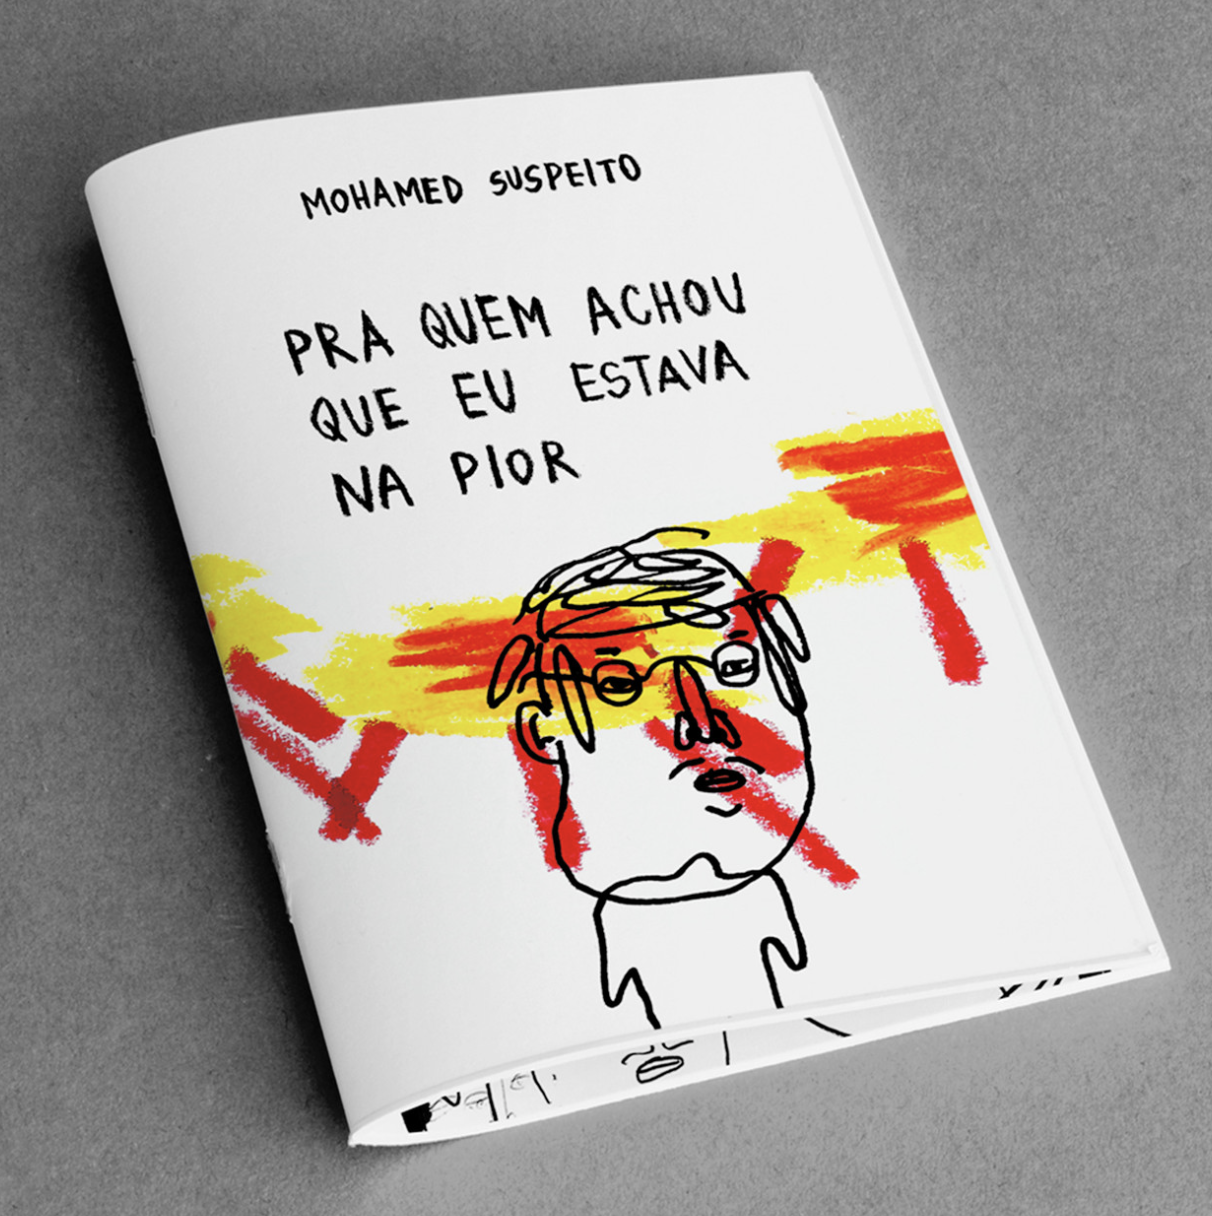 MOHAMED SUSPEITO
PRA QUEM ACHOU
QUE EU ESTAVA
NA PIOR